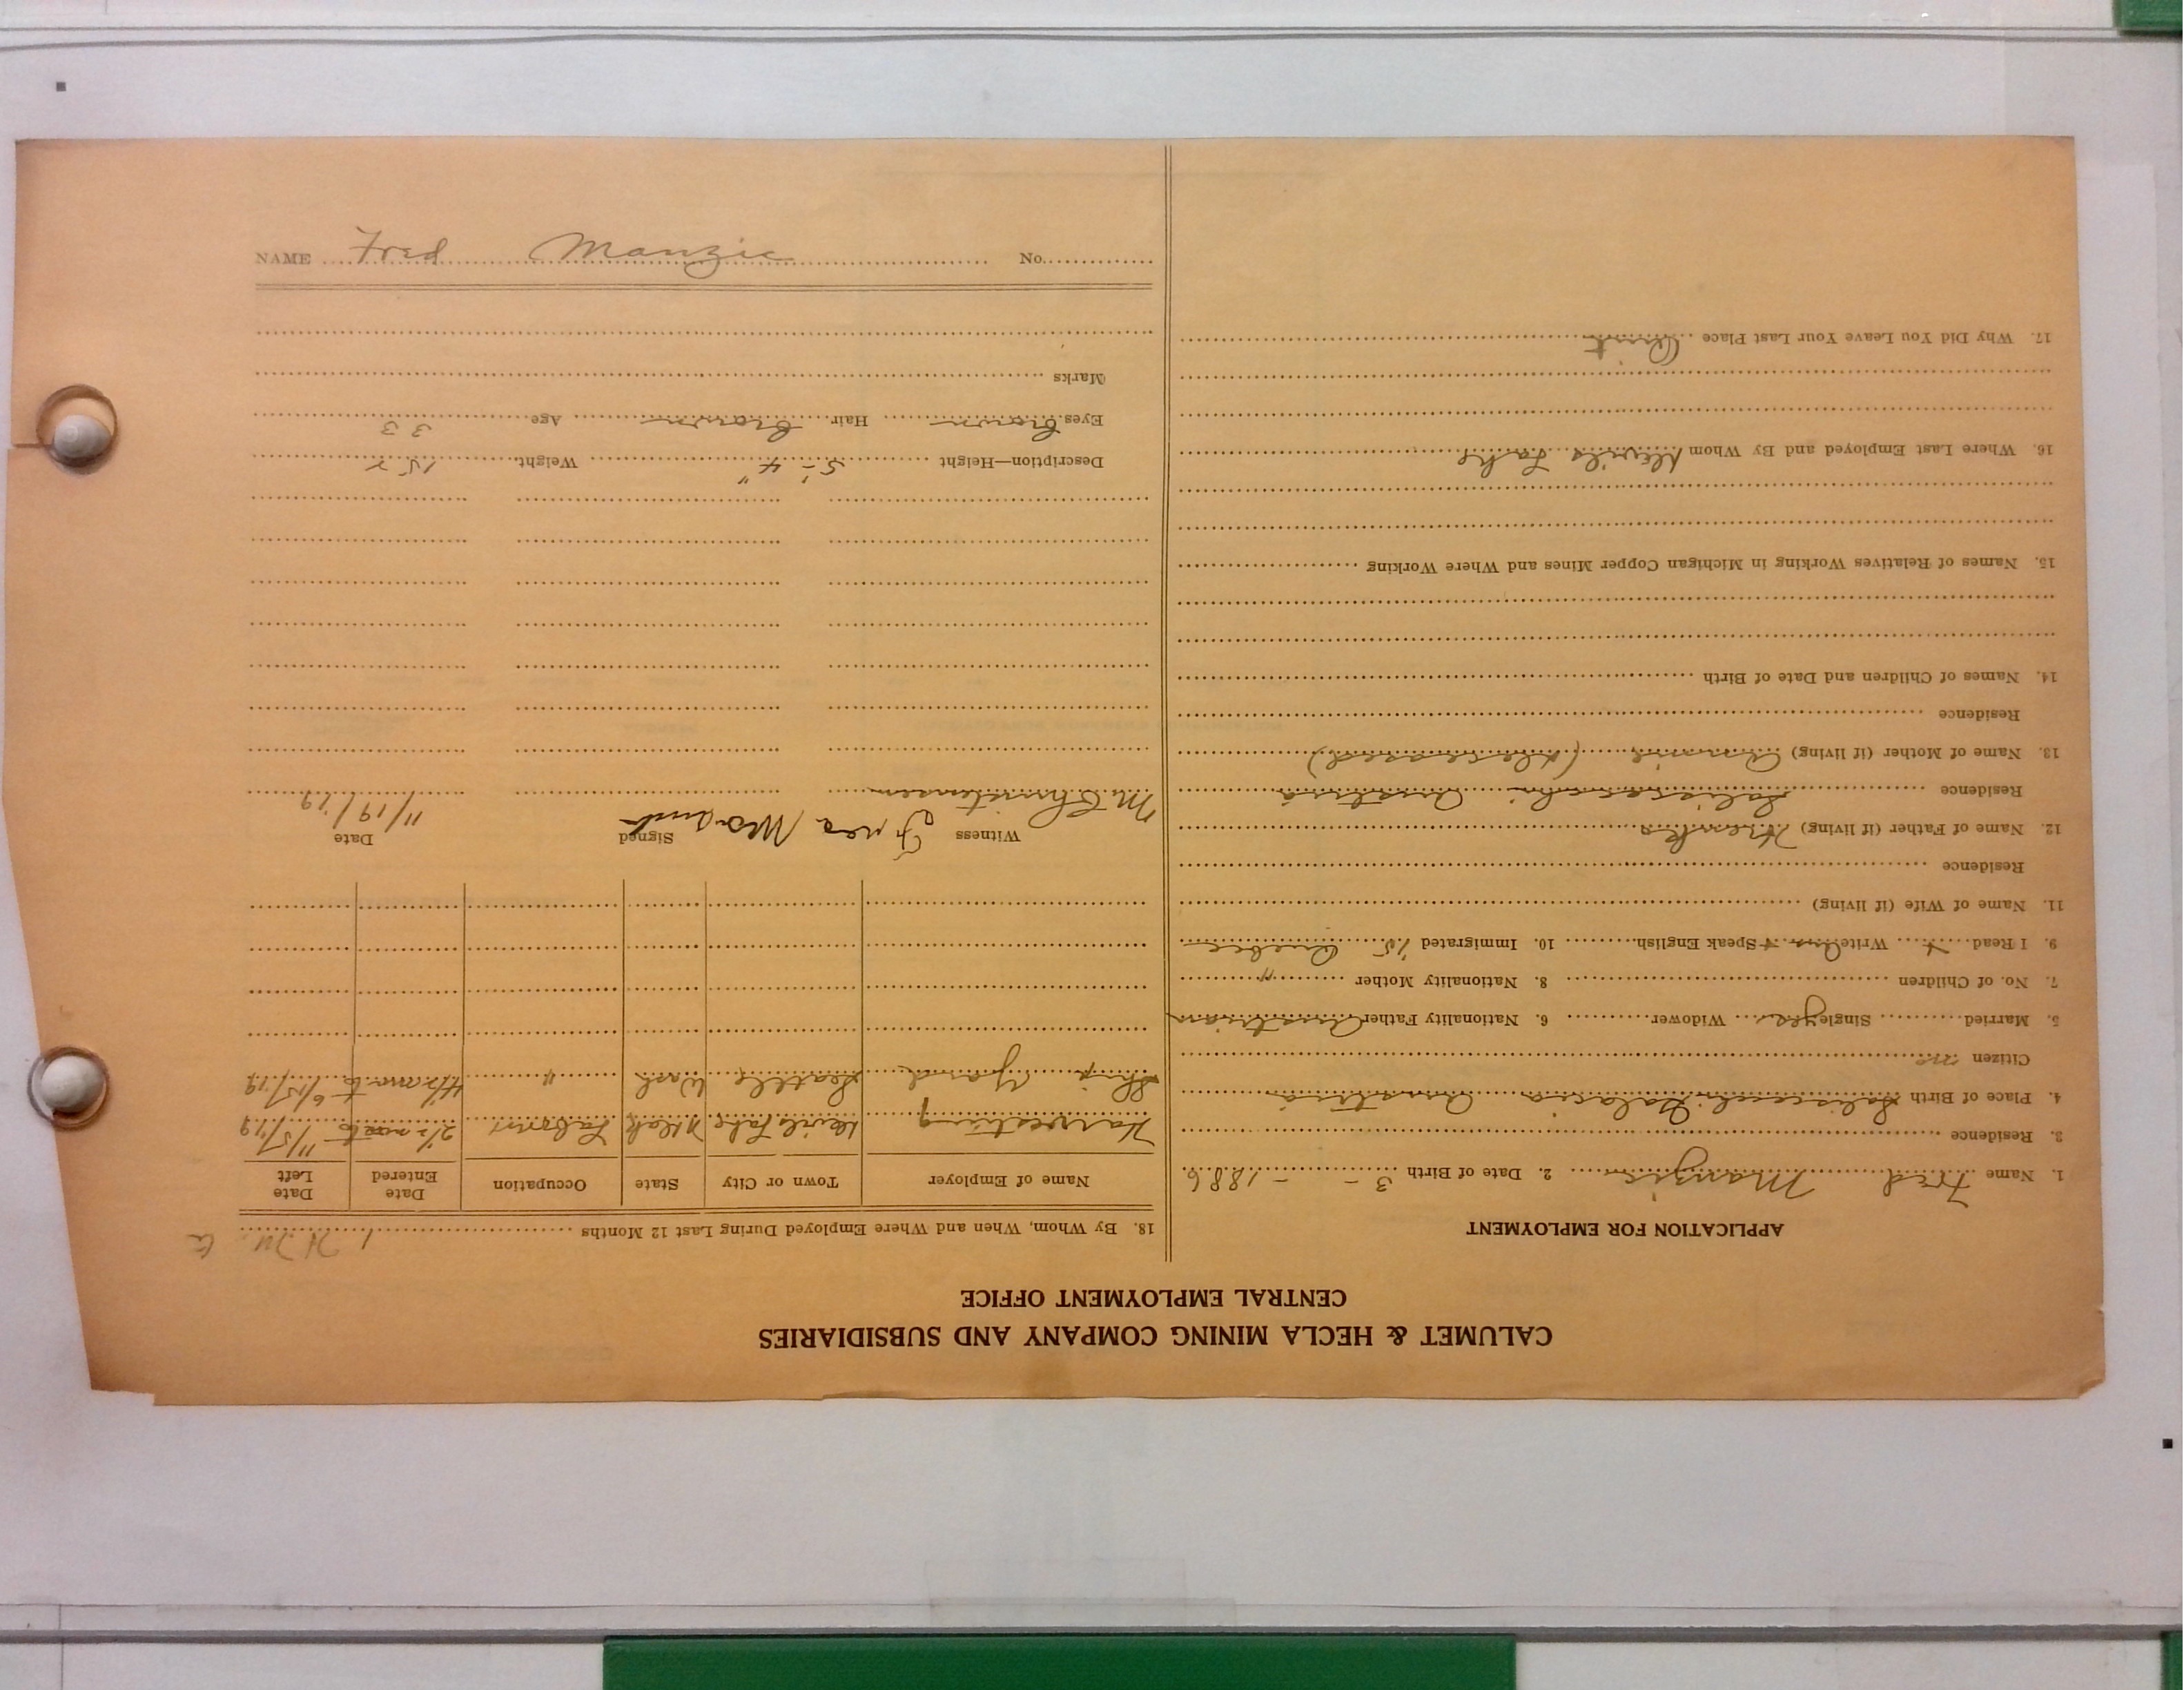 CALUMET & HECLA MINING COMPANY AND SUBSIDIARIES
CENTRAL EMPLOYMENT OFFICE
APPLICATION FOR EMPLOYMENT
1. Name Fred Manzie 2. Date of Birth 3 - - 1886
3. Residence
4. Place of Birth Galacia Austria
Citizen no
5. Married Single yes Widower 6. Nationality Father Austrian
7. No. of Children 8. Nationality Mother "
9. I Read Write Speak English 10. Immigrated '15 Quebec
11. Name of Wife (if living)
Residence
12. Name of Father (if living)
Residence Austria
13. Name of Mother (if living) Annie (deceased)
Residence
14. Names of Children and Date of Birth
15. Names of Relatives Working in Michigan Copper Mines and Where Working
16. Where Last Employed and By Whom Devils Lake
17. Why Did You Leave Your Last Place Quit
18. By Whom, When and Where Employed During Last 12 Months
Name of Employer Town or City State Occupation Date Entered Date Left
Harvesting Devils Lake N Dak Laborer 2 1/2 11/5/19
Ship Yard Seattle Wash " 6/15/19
Witness Signed Date
M. Christensen 11/19/19
Description—Height 5'-4" Weight 152
Eyes brown Hair brown Age 33
Marks
NAME Fred Manzie No.